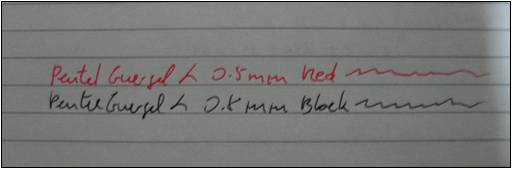 Pentel Energel X 0.5mm Red
Pentel Energel X 0.5mm Black